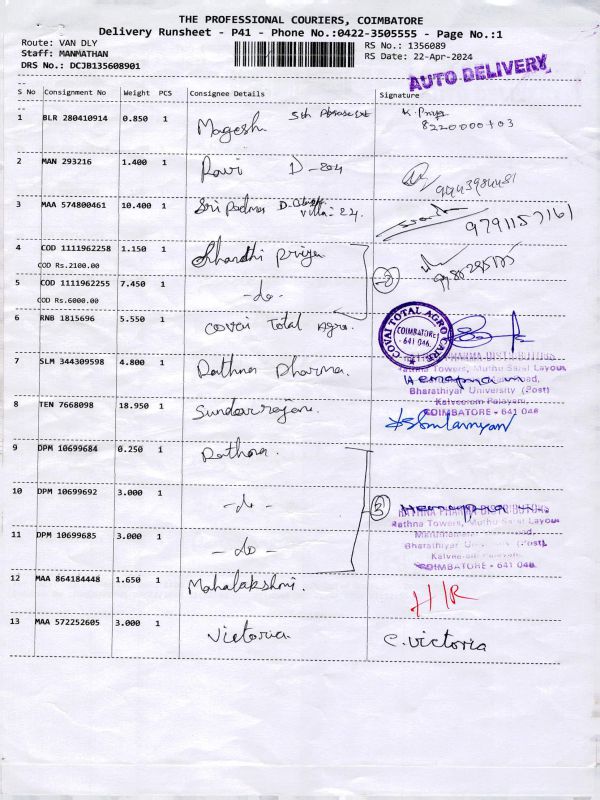 THE PROFESSIONAL COURIERS, COIMBATORE
Delivery Runsheet - P41 - Phone No.:0422-3505555 - Page No.:1
Route: VAN DLY
RS No.: 1356089
Staff: MANMATHAN
RS Date: 22-Apr-2024
DRS No.: DCJB135608901
AUTO DELIVERY
S No Consignment No Weight PCS Consignee Details Signature
1 BLR 280410914 0.850 1 Magesh 5th K. Priya
2 MAN 293216 1.400 1 Ravi D-204
3 MAA 574800461 10.400 1 Sri Padma Villa-24. 9791157161
4 COD 1111962258 1.150 1 Shandhi Priya
COD Rs.2100.00
5 COD 1111962255 7.450 1 -do-
COD Rs.6000.00
6 RNB 1815696 5.550 1 covai Total Agro.
COVAI TOTAL AGRO CARE
COIMBATORE
- 641 046.
7 SLM 344309598 4.800 1 Rathna Pharma.
Rathna Towers, Muthu Saral Layout
Bharathiyar University (Post)
Kalveeram Palayam,
COIMBATORE - 641 046
8 TEN 7668098 18.950 1 Sundarrajan.
9 DPM 10699684 0.250 1 Rathna.
10 DPM 10699692 3.000 1 -do-
3
RATHNA PHARMA DISTRIBUTORS
Rathna Towers, Muthu Saral Layout
11 DPM 10699685 3.000 1 -do-
Bharathiyar University (Post),
COIMBATORE - 641 046
12 MAA 864184448 1.650 1 Mahalakshmi. HR
13 MAA 572252605 3.000 1 Victoria. C. Victoria